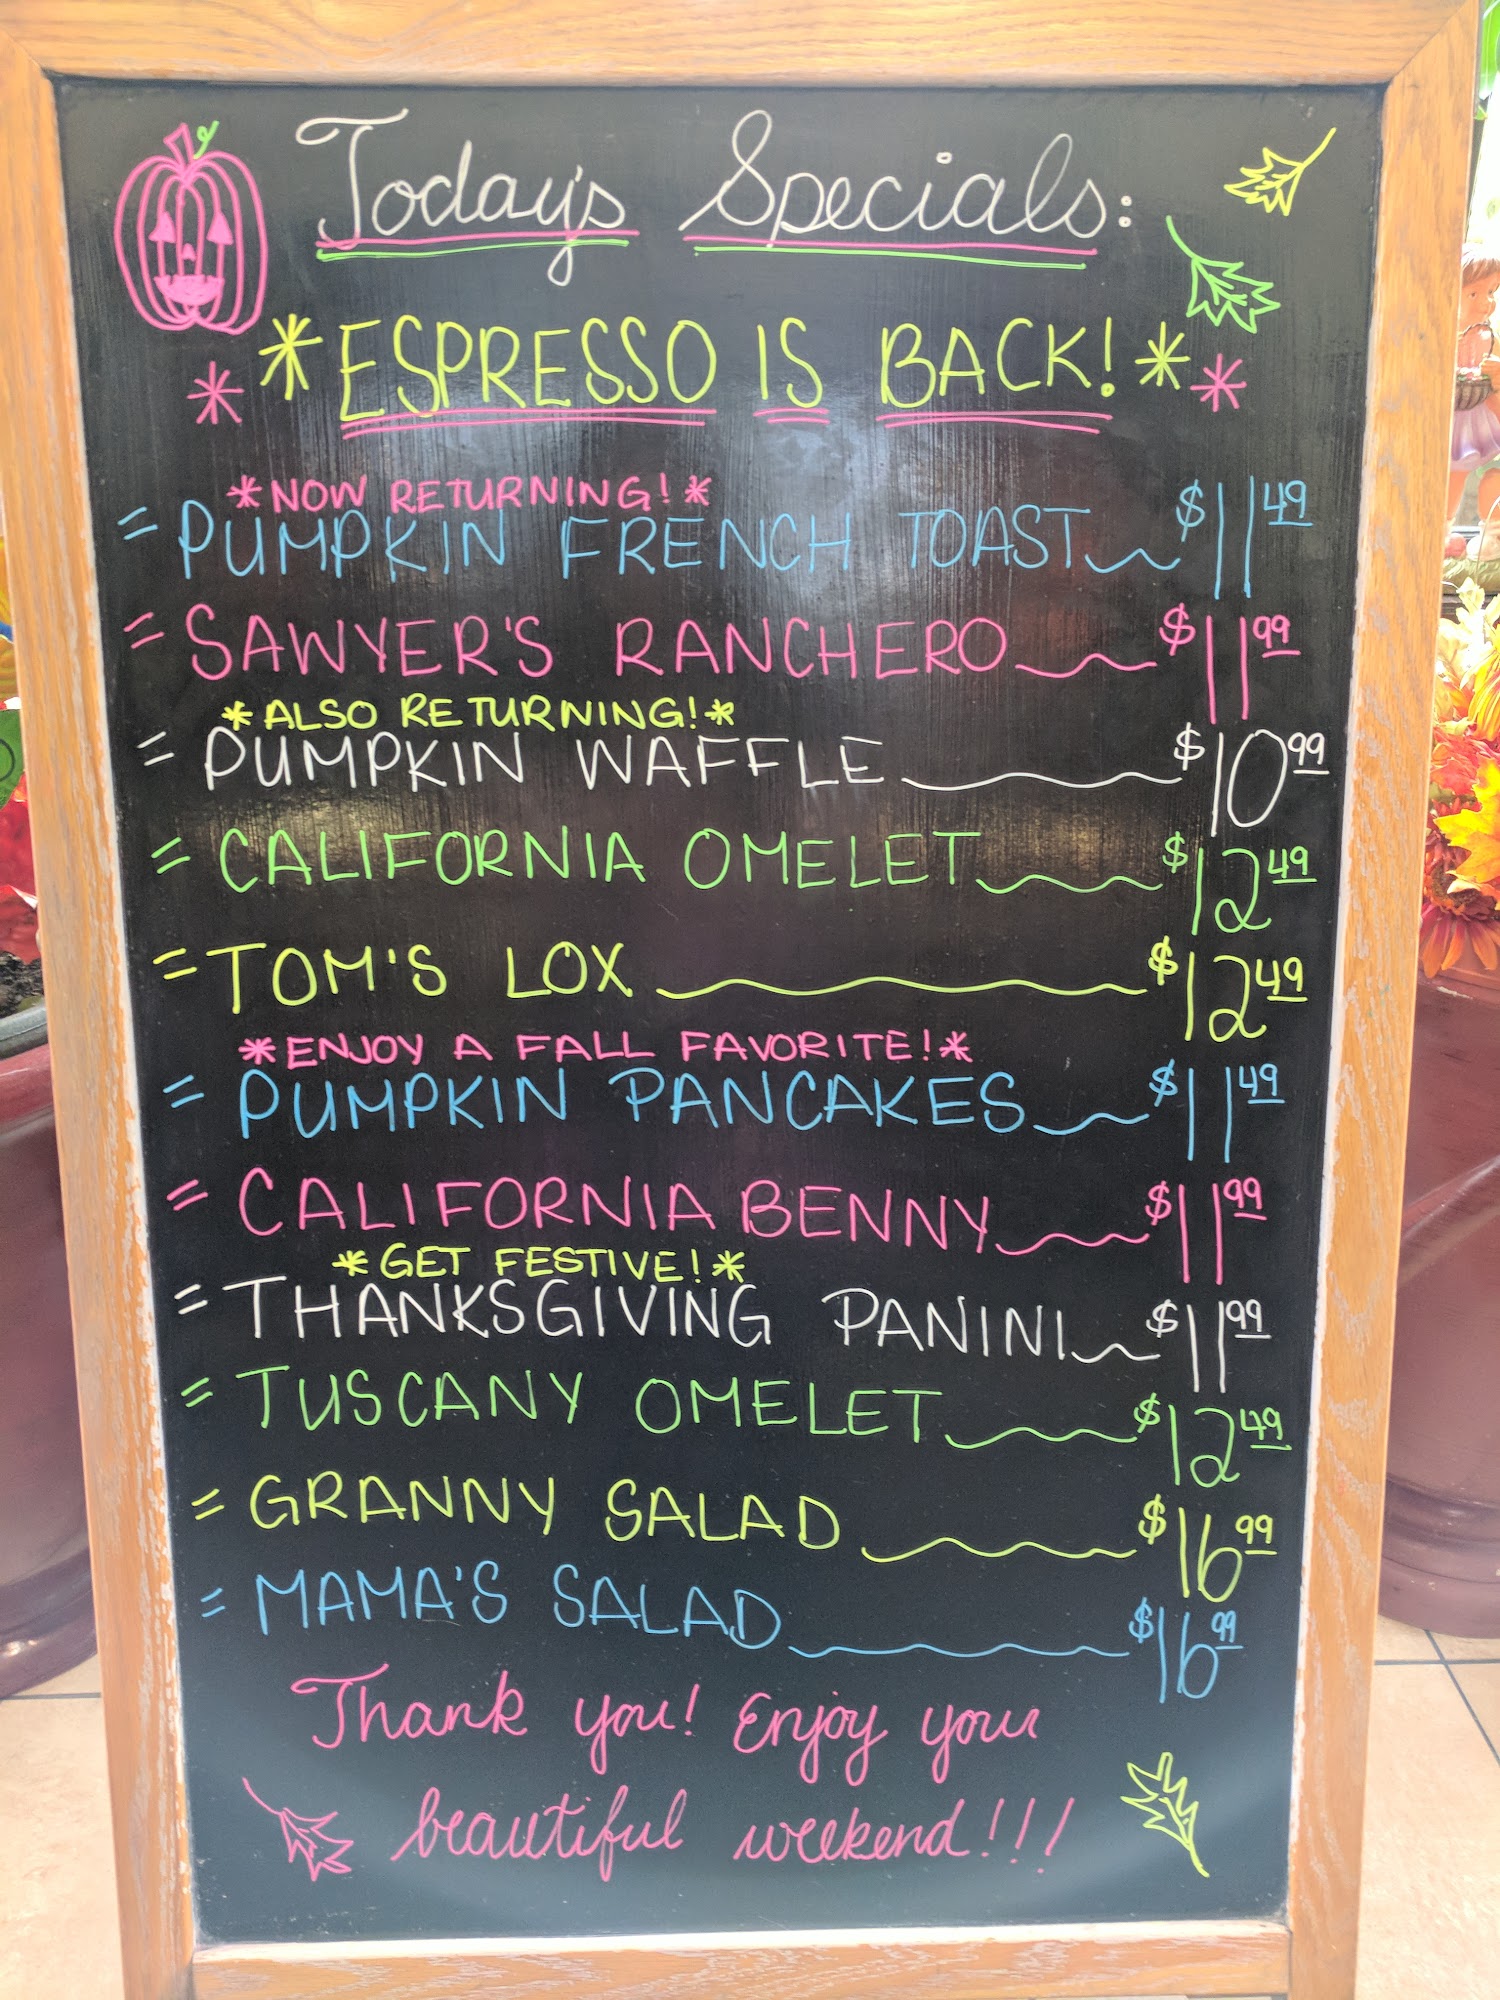 Today's Specials:
*ESPRESSO IS BACK!*
*NOW RETURNING!*
= PUMPKIN FRENCH TOAST $11.49
= SAWYER'S RANCHERO $11.99
*ALSO RETURNING!*
= PUMPKIN WAFFLE $10.99
= CALIFORNIA OMELET $12.49
= TOM'S LOX $12.49
*ENJOY A FALL FAVORITE!*
= PUMPKIN PANCAKES $11.49
= CALIFORNIA BENNY $11.99
*GET FESTIVE!*
= THANKSGIVING PANINI $11.99
= TUSCANY OMELET $12.49
= GRANNY SALAD $16.99
= MAMA'S SALAD $16.99
Thank you! Enjoy your
beautiful weekend!!!